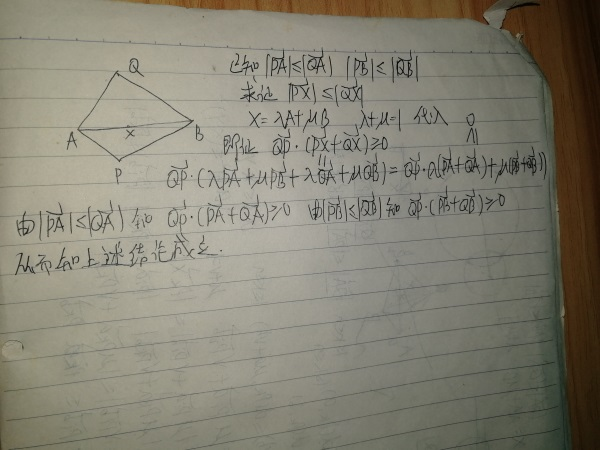 Q
A
x
B
P
已知 |PA|≤|QA| |PB|≤|QB|
求证 |PX|≤|QX|
X=λA+μB λ+μ=1 代入
0
即证 QP·(PX+QX)≥0
QP·(λPA+μPB+λQA+μQB)=QP·(λ(PA+QA)+μ(PB+QB))
由|PA|≤|QA| 知 QP·(PA+QA)≥0 由|PB|≤|QB|知 QP·(PB+QB)≥0
从而知上述结论成立.